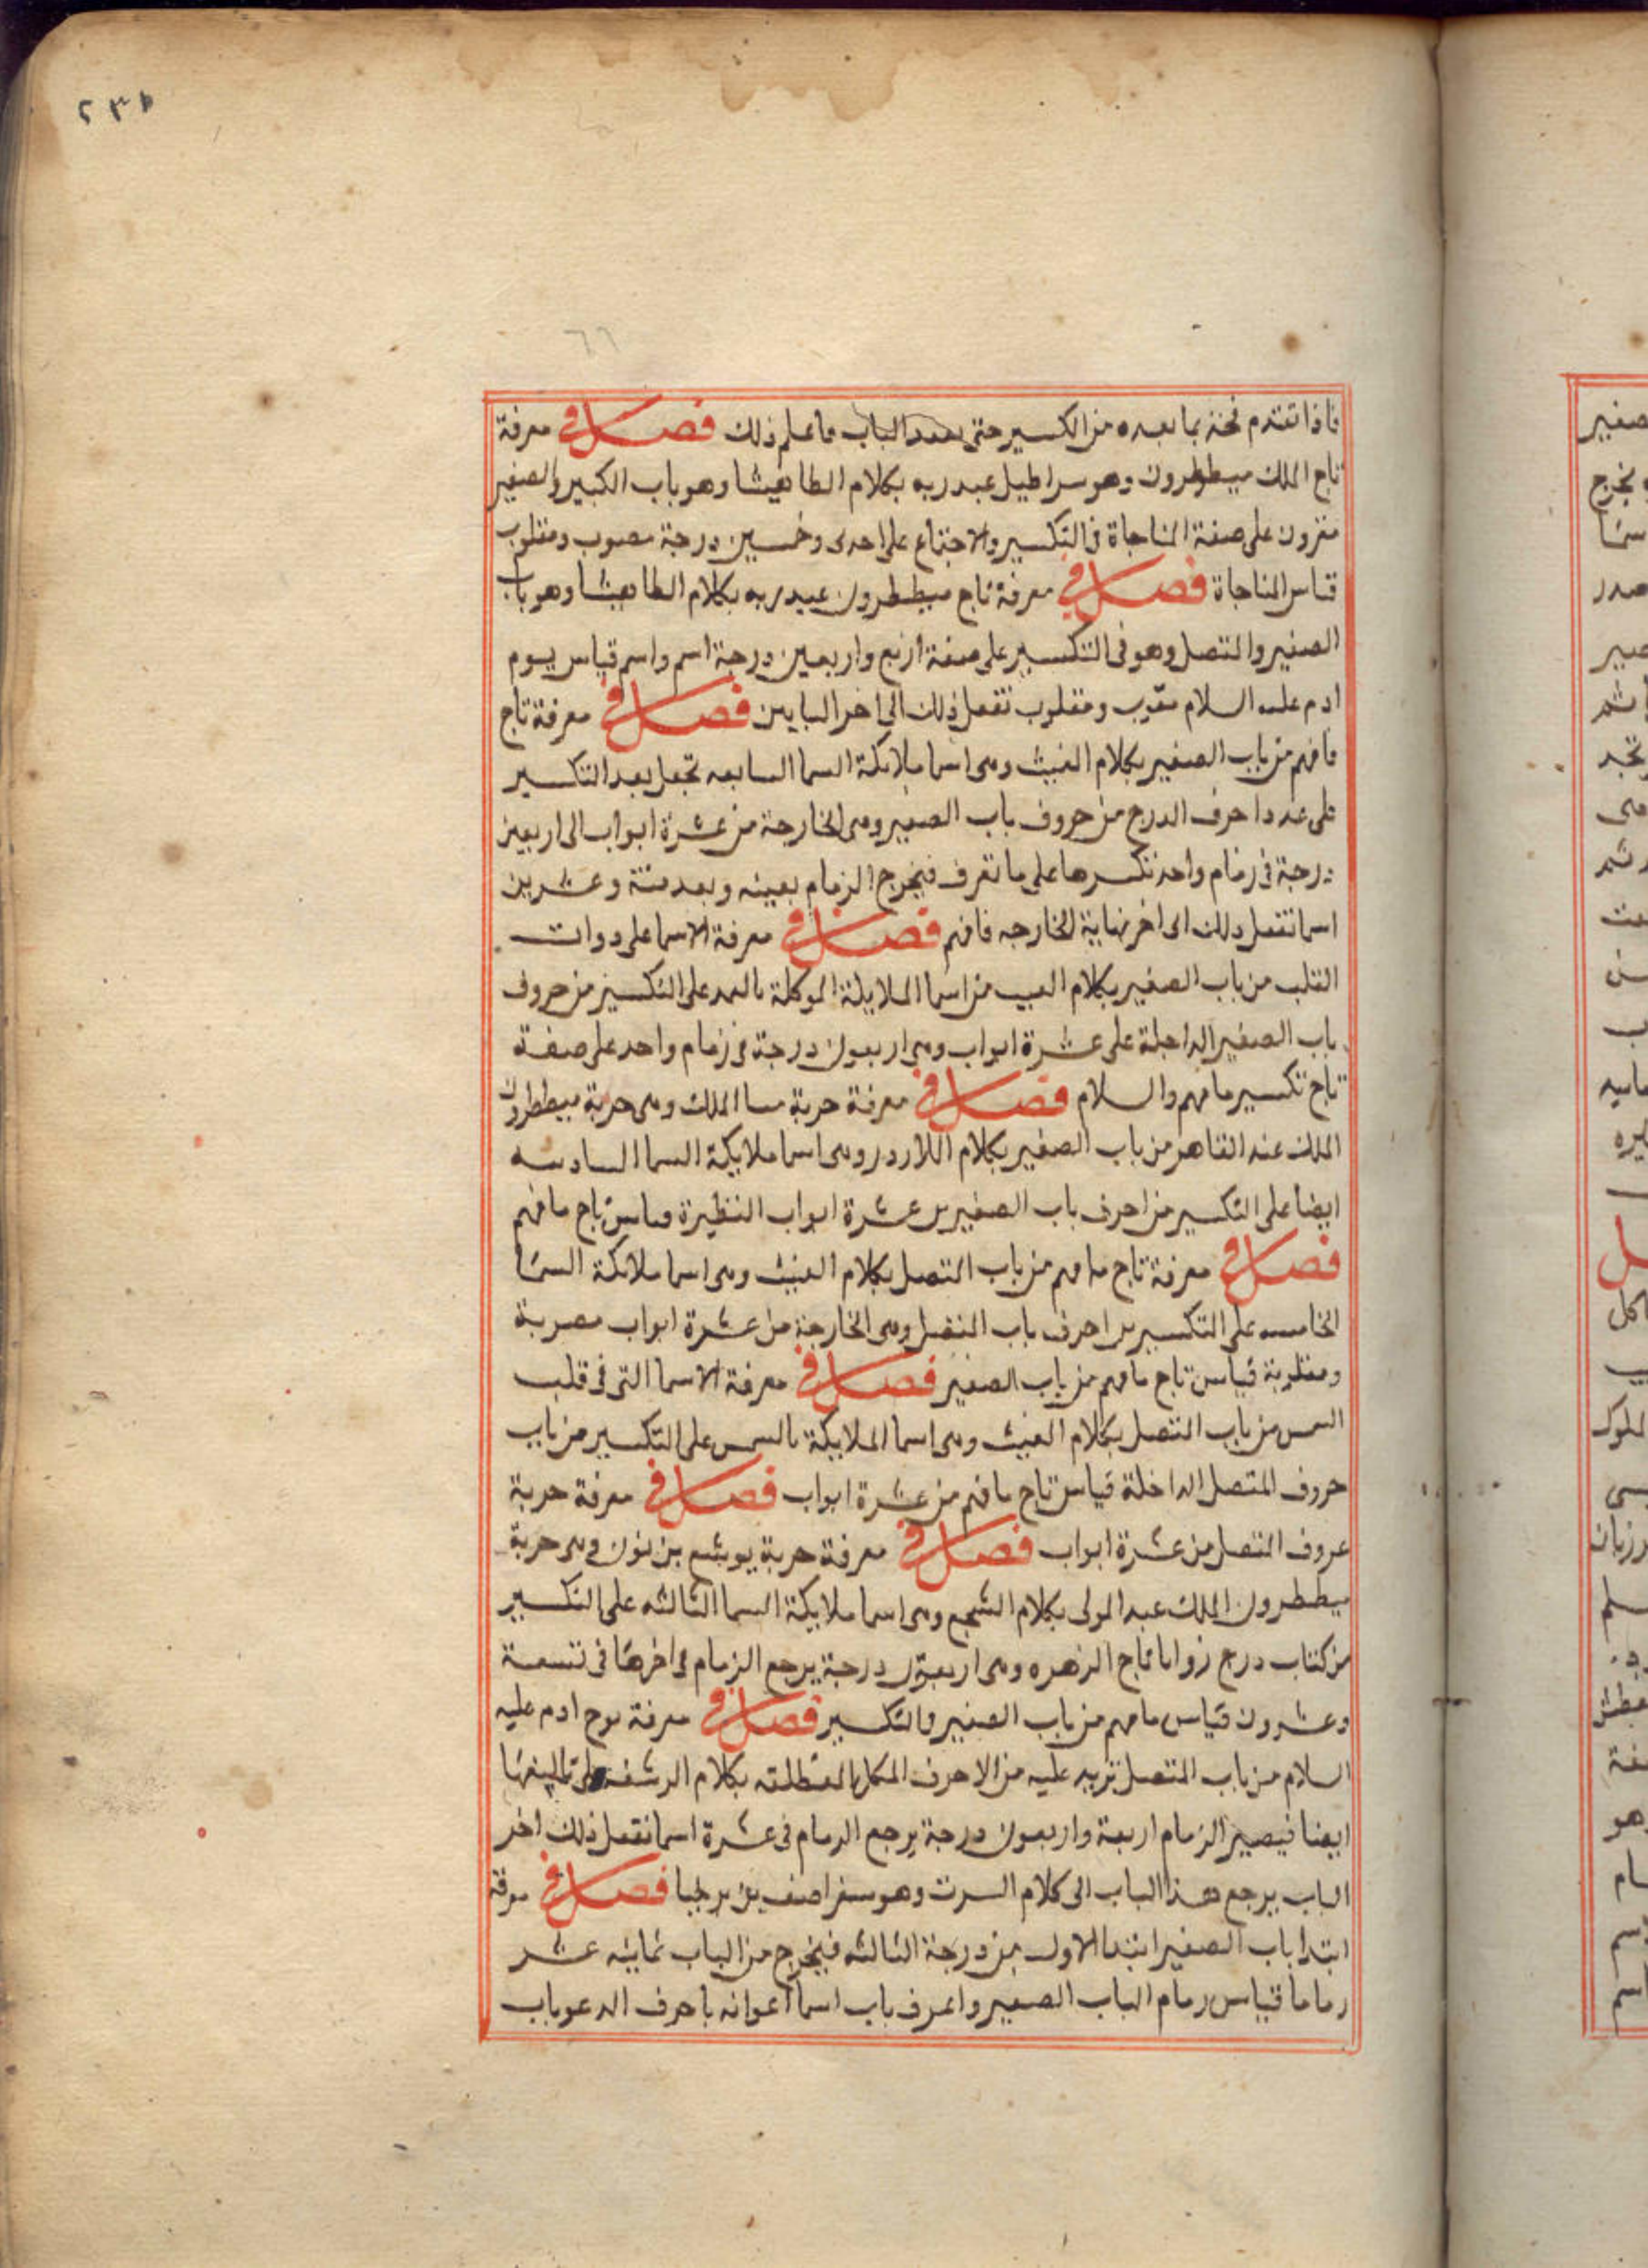 ٢٣٥
٦٦
فاذا تقدم فخذ بما بعده من الكسير حتى الباب فاعلم ذلك فصل في معرفة
تاج الملك ميططرون وهو سراطيل عبد ربه بكلام الطاهيشا وهو باب الكبير والصغير
مقرون على صفة المناجاة في التكسير والاجتماع على احدى وخمسين درجة منصوب ومقلوب
قياس المناجاة فصل في معرفة تاج ميططرون عبد ربه بكلام الطاهيشا وهو باب
الصغير والمتصل وهو في التكسير على صفة اربع واربعين درجة اسم واسم قياس يوم
ادم عليه السلام ومقلوب تفعل ذلك الى اخر البابين فصل في معرفة تاج
مافهم من باب الصغير بكلام الغيث وهى اسما ملائكة السما السابعه تجعل بعد التكسير
على عدد احرف الدرج من حروف باب الصغير وهى الخارجة من عشرة ابواب الى اربعين
درجة في زمام واحد تكسرها على ما تعرف فيخرج الزمام بعينه وبعد ستة وعشرين
اسما تفعل ذلك الى اخر نهاية الخارجه فافهم فصل في معرفة الاسما على دوات
القلب من باب الصغير بكلام العيب من اسما الملايكة الموكلة على التكسير من حروف
باب الصغير الداخلة على عشرة ابواب وهى اربعون درجة في زمام واحد على صفة
تاج تكسير مافهم والسلام فصل في معرفة حربة الملك وهى حربة ميططرون
الملك عند القاهر من باب الصغير بكلام وهى اسما ملايكة السما السادسه
ايضا على التكسير من احرف باب الصغير من عشرة ابواب النظيرة قياس تاج مافهم
فصل في معرفة تاج مافهم من باب المتصل بكلام الغيث وهى اسما ملائكة السما
الخامسه على التكسير من احرف باب المتصل وهى الخارجة من عشرة ابواب
ومقلوبة قياس تاج مافهم من باب الصغير فصل في معرفة الاسما التى في قلب
الشمس من باب المتصل بكلام الغيث وهى اسما الملايكة بالشمس على التكسير من باب
حروف المتصل الداخلة قياس تاج مافهم من عشرة ابواب فصل في معرفة حربة
عروف المتصل من عشرة ابواب فصل في معرفة حربة يوشع بن نون وهى حربة
ميططرون الملك عبد المولى بكلام الشجع وهى اسما ملايكة السما الثالثه على التكسير
من كتاب درج زوايا تاج الزهره وهى اربعون درجة يرجع الزمام في اخرها في تسعة
وعشرون قياس مافهم من باب الصغير والتكسير فصل في معرفة لوح ادم عليه
السلام من باب المتصل تزيد عليه من الاحرف بكلام
ايضا فيصير الزمام اربعة واربعون درجة يرجع الزمام في عشرة اسما تفعل ذلك اخر
الباب يرجع هذا الباب الى كلام السرت وهو سفر اصف بن برخيا فصل في معرفة
ابتدا باب الصغير ابتدا الاول من درجة الثالثه فيخرج من الباب ثمانيه عشر
زماما قياس زمام الباب الصغير واعرف باب اسما اعوانه باحرف باب